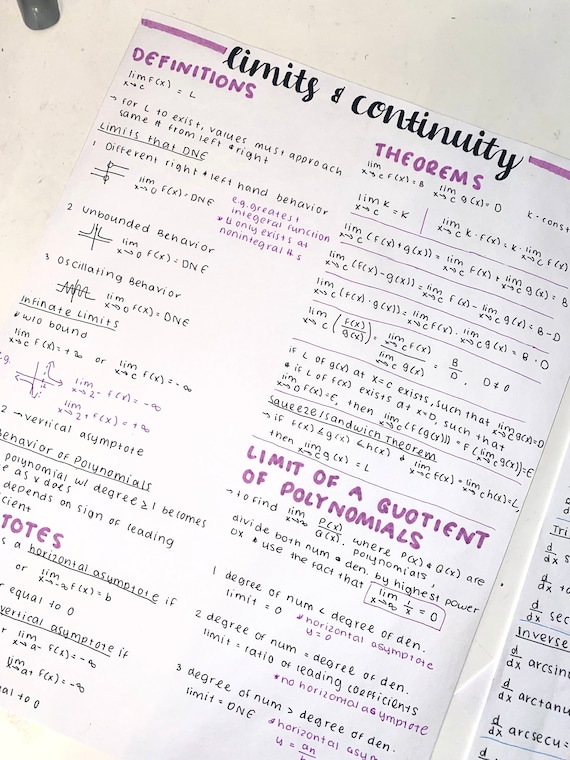 limits & continuity
DEFINITIONS
lim x→c f(x) = L
→ for L to exist, values must approach
same # from left & right
Limits that DNE
1 Different right & left hand behavior
lim x→0 f(x) = DNE
e.g. greatest
integeral function
* L only exists at
nonintegral #s
2 unbounded Behavior
lim x→0 f(x) = DNE
3 Oscillating Behavior
lim x→0 f(x) = DNE
Infinate Limits
* w/o bound
lim x→c f(x) = +∞ or lim x→c f(x) = -∞
e.g.
lim x→2⁻ f(x) = -∞
lim x→2⁺ f(x) = +∞
2 → vertical asymptote
Behavior of Polynomials
polynomial w/ degree ≥ 1 becomes
as x does
depends on sign of leading
TOTES
s a horizontal asymptote if
or lim x→-∞ f(x) = b
equal to 0
vertical asymptote if
lim x→a⁻ f(x) = -∞
lim x→a⁺ f(x) = -∞
to 0
THEOREMS
lim x→c f(x) = B lim x→c g(x) = D
lim x→c k = k
lim x→c k · f(x) = k · lim x→c f(x)
lim x→c (f(x) + g(x)) = lim x→c f(x) + lim x→c g(x) = B
lim x→c (f(x) - g(x)) = lim x→c f(x) - lim x→c g(x) = B - D
lim x→c (f(x) · g(x)) = lim x→c f(x) · lim x→c g(x) = B · D
lim x→c (f(x)/g(x)) = lim x→c f(x) / lim x→c g(x) = B/D, D ≠ 0
if L of g(x) at x=c exists, such that lim x→c g(x) = D
& if L of f(x) exists at x=D, such that
lim x→D f(x) = E, then lim x→c (f(g(x))) = F(lim x→c g(x)) = E
Squeeze/Sandwich Theorem
→ if f(x) ≤ g(x) ≤ h(x) & lim x→c f(x) = lim x→c h(x) = L,
then lim x→c g(x) = L
LIMIT OF A QUOTIENT
OF POLYNOMIALS
→ to find lim x→∞ P(x)/Q(x), where P(x) & Q(x) are
polynomials,
divide both num & den. by highest power
ox & use the fact that lim x→∞ 1/x = 0
1 degree of num < degree of den.
limit = 0 * horizontal asymptote
y = 0
2 degree of num = degree of den.
limit = ratio of leading coefficients
* no horizontal asymptote
3 degree of num > degree of den.
limit = DNE
* horizontal asym
y = an
Tri
d/dx s
d/dx
d/dx sec
Inverse
d/dx arcsin
d/dx arctanu
d/dx arcsecu =